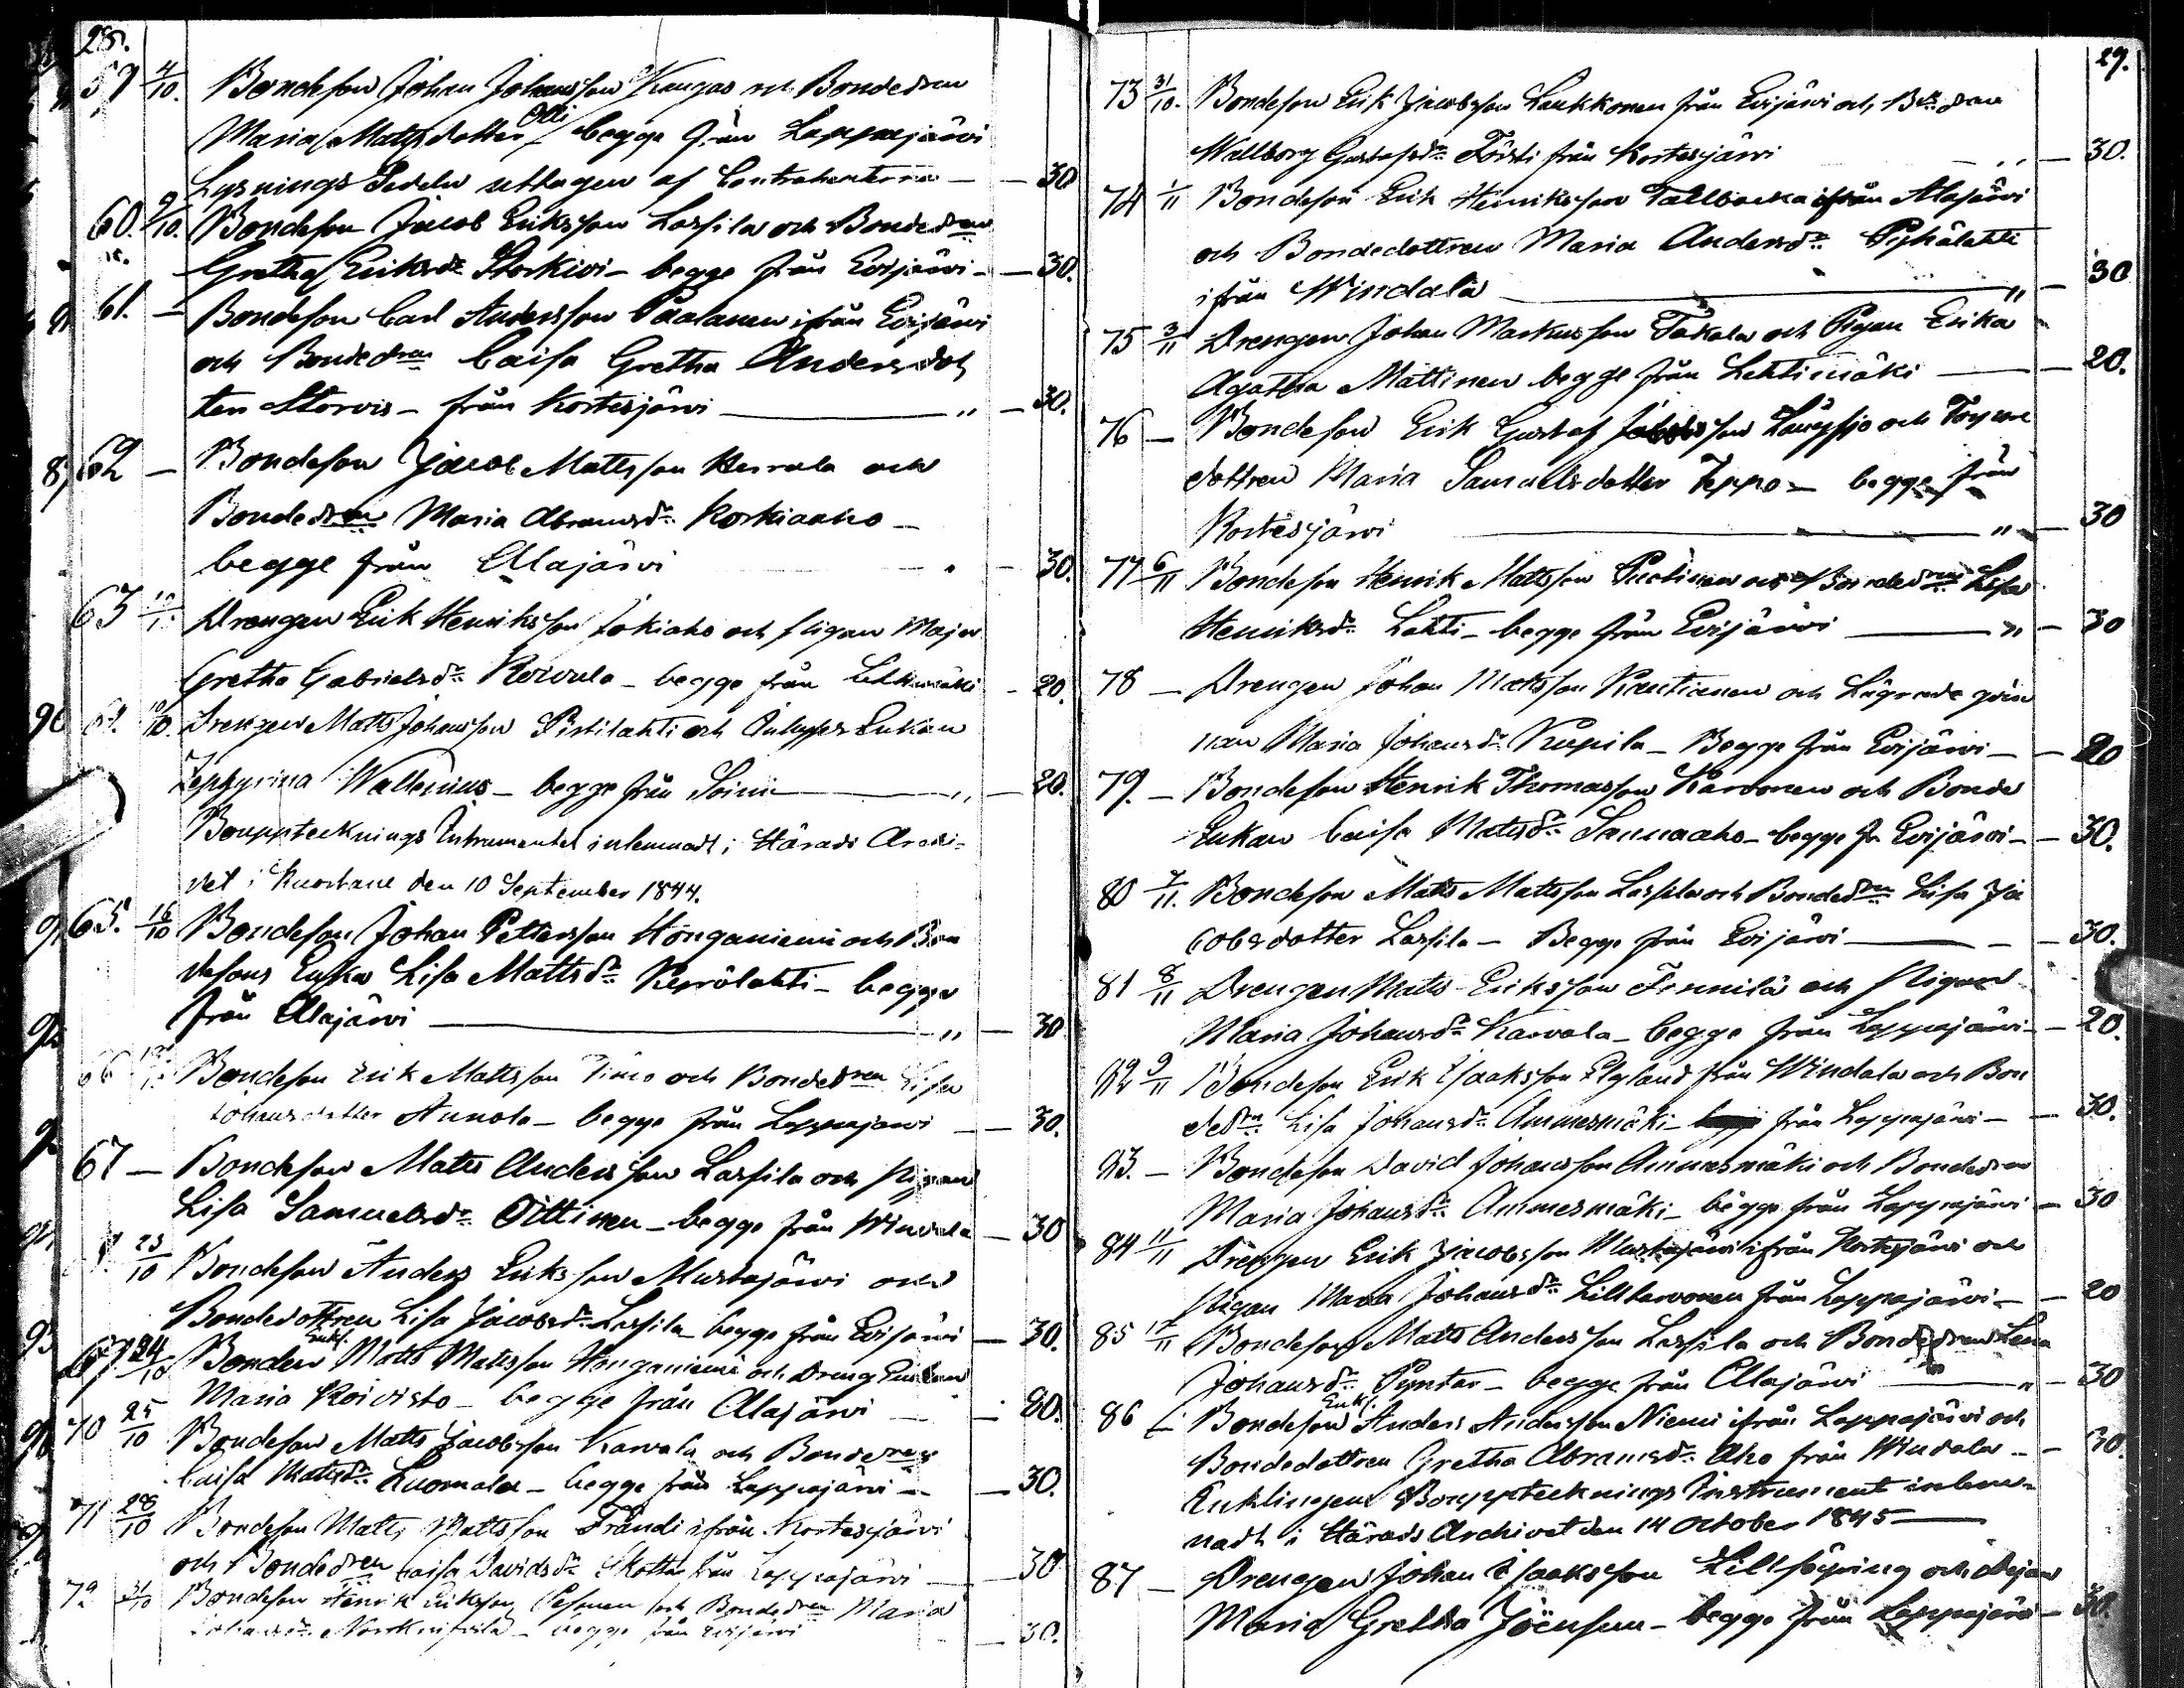 28.
59 4/10. Bondeson Johan Johansson Kangas och Bondedren
Olli
Maria Mattsdotter begge från Lappajärvi
Lysnings Sedeln uttagen af Contrahenterna — 30
60. 9/10. Bondeson Jacob Eriksson Lassila och Bondedren
Gretha Eriksdr Storkivi - begge från Evijärvi - 30.
61. — Bondeson Carl Andersson Paalanen ifrån Evijärvi
och Bondedren Caisa Gretha Andersdot
ter Storvis - från Kortesjärvi — " — 30.
62 — Bondeson Jacob Mattsson Herrala och
Bondedren Maria Abramsdr Korkiaaho -
begge från Alajärvi — 30.
63 Drengen Erik Henriksson Jokiaho och Pigan Maja
Gretha Gabrielsdr Koivula - begge från Lehtimäki - 20.
64. 10/10. Drengen Matts Johansson Pistilahti och Enkan
Zephyrina Wallenius - begge från Soini — " — 20.
Boupptecknings Instrumentet inlemnadt i Härads Archi-
vet i Kuortane den 10 September 1844.
65. 16/10 Bondeson Johan Pettersson Honganiemi och Bon
desons Enka Lisa Mattsdr Keprälahti - begge
från Alajärvi — " — 30
66 Bondeson Erik Mattsson Timo och Bondedren Lisa
Johansdotter Annola - begge från Lappajärvi — 30.
67 — Bondeson Matts Andersson Lassila och Pigan
Lisa Samuelsdr Oittinen - begge från Windala — 30
23/10 Bondeson Anders Eriksson Mustajärvi och
Bondedottren Lisa Jacobsdr Lassila begge från Evijärvi — 30.
Enkl.
69 24/10 Bonden Matts Mattsson Honganiemi och Dreng Enkan
Maria Koivisto - begge från Alajärvi — 80.
70 25/10 Bondeson Matts Jacobsson Karvala och Bondedren
Caisa Mattsdr Luomala - begge från Lappajärvi — 30.
71 28/10 Bondeson Matts Mattsson Frändi ifrån Kortesjärvi
och Bondedren Caisa Davidsdr Skotta från Lappajärvi — 30
72 31/10 Bondeson Henrik Eriksson och Bondedren Maria
Johansdr - begge från Evijärvi — 30.
29.
73 31/10. Bondeson Erik Jacobsson Laukkonen från Evijärvi och Bdedren
Wallborg Gustafsdr Försti från Kortesjärvi — 30.
74 1/11 Bondeson Erik Henriksson Tallbacka ifrån Alajärvi
och Bondedottren Maria Andersdr Pyhälahti
ifrån Windala — " — 30
75 3/11 Drengen Johan Markusson Takala och Pigan Erika
Agatha Mattinen begge från Lehtimäki — 20.
76 — Bondeson Erik Gustaf Långsjo och Torpare
dottren Maria Samuelsdotter Teppo - begge från
Kortesjärvi — " — 30
77 6/11 Bondeson Henrik Mattsson och Bondedren Lisa
Henriksdr Lahti - begge från Evijärvi — " — 30
78 — Drengen Johan Mattsson Rautianen och Lägrade qvin
nan Maria Johansdr Kupila - Begge från Evijärvi — 20
79. — Bondeson Henrik Thomasson Karvonen och Bonde
Enkan Caisa Mattsdr Sannaaho - begge fr. Evijärvi — 30.
80 7/11. Bondeson Matts Mattsson Lassila och Bondedren Lisa Ja
cobsdotter Lassila - Begge från Evijärvi — 30.
81 8/11 Drengen Matts Eriksson Fennilä och Pigan
Maria Johansdr Karvala - begge från Lappajärvi — 20.
82 9/11 Bondeson Erik Isaksson Elgland från Windala och Bon
dedren Lisa Johansdr Ammesmäki - från Lappajärvi — 30.
83. — Bondeson David Johansson Ammesmäki och Bondedren
Maria Johansdr Ammesmäki - begge från Lappajärvi — 30
84 11/11 Drengen Erik Jacobsson Mustajärvi ifrån Kortesjärvi och
Pigan Maria Johansdr Lillkarvonen från Lappajärvi — 20
85 Bondeson Matts Andersson Lassila och Bondedren Lena
Johansdr Pyntar - begge från Alajärvi — " — 30
Enkl.
86 — Bondeson Anders Andersson Niemi ifrån Lappajärvi och
Bondedottren Gretha Abramsdr Aho från Windala — 30.
Enklingens Bouppteknings Instrument inlem-
nadt i Härads Archivet den 14 October 1845 —
87 — Drengen Johan Isaksson Lillsöyring och Pejan
Maria Gretha Jöensuu - begge från Lappajärvi — 30.